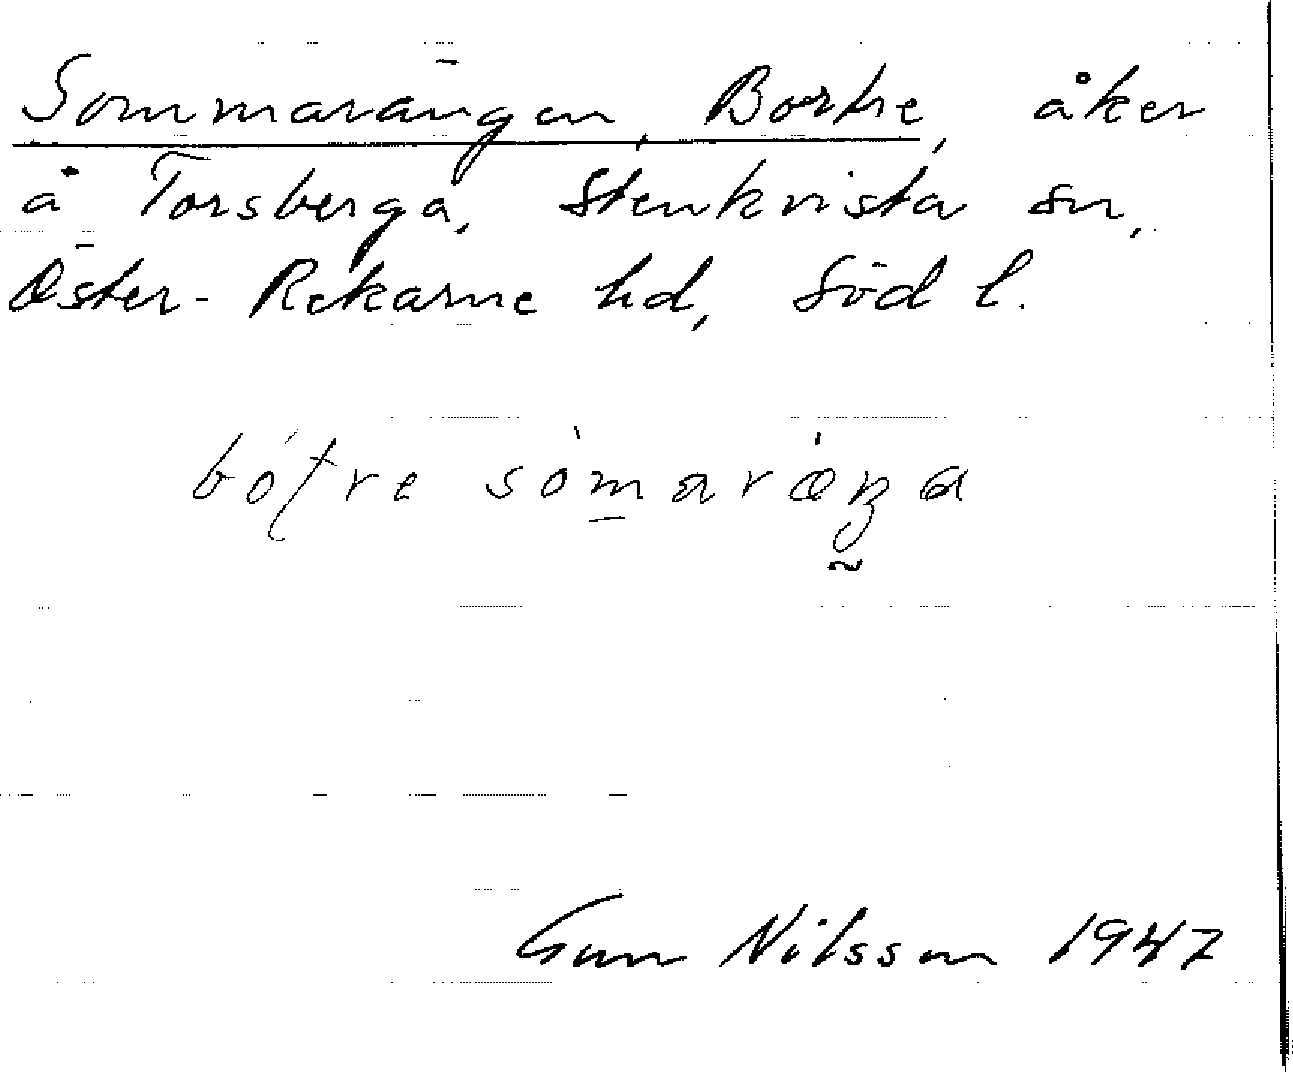 Sommarängen, Bortre, åker
å Torsberga, Stenkvista sn,
Öster-Rekarne hd, Söd l.
Gun Nilsson 1947